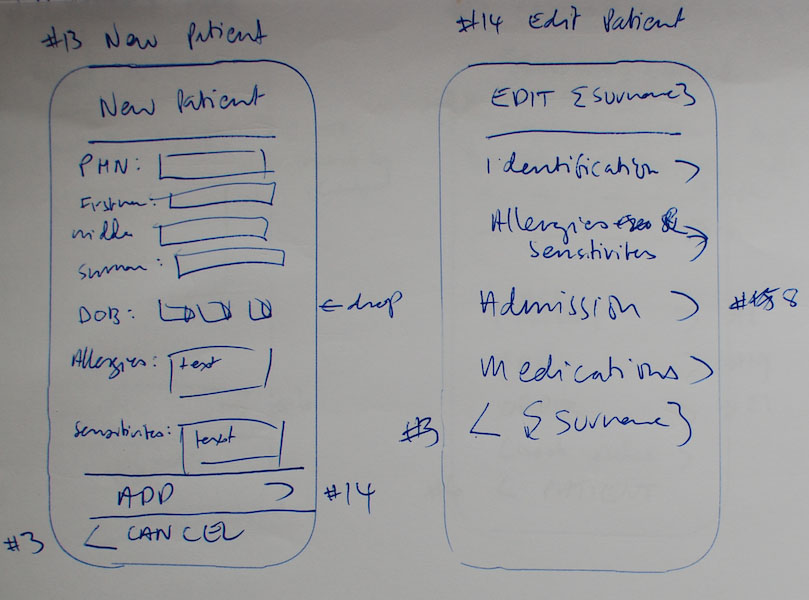 #13 New Patient
New Patient
PHN:
Firstnam:
middle
Surnam:
DOB:
← drop
Allergies: text
Sensitivites: text
ADD > #14
#3 < CANCEL
#14 Edit Patient
EDIT {Surname}
Identification >
Allergies & >
Sensitivites
Admission > #8
Medications >
#3 < {Surname}